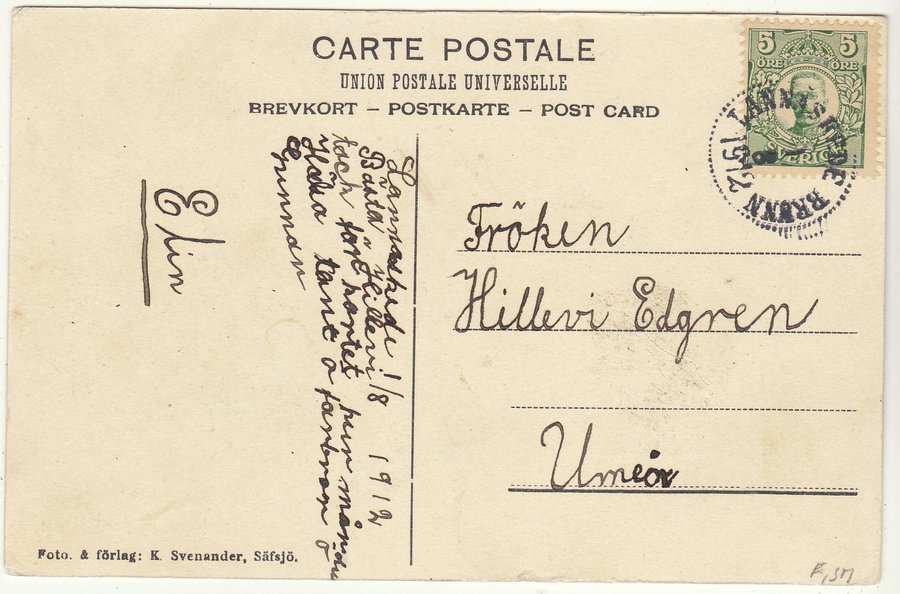 CARTE POSTALE
UNION POSTALE UNIVERSELLE
BREVKORT – POSTKARTE – POST CARD
5 5
ÖRE ÖRE
SVERIGE
LANNASKEDE BRUNN
1
8
Lannaskede 1/8 1912
Bästa Hillevi
tack för kortet hur mår du
Hälsa tant o farbror o
Elin
Fröken
Hillevi Edgren
Umeå
Foto. & förlag: K. Svenander, Säfsjö.